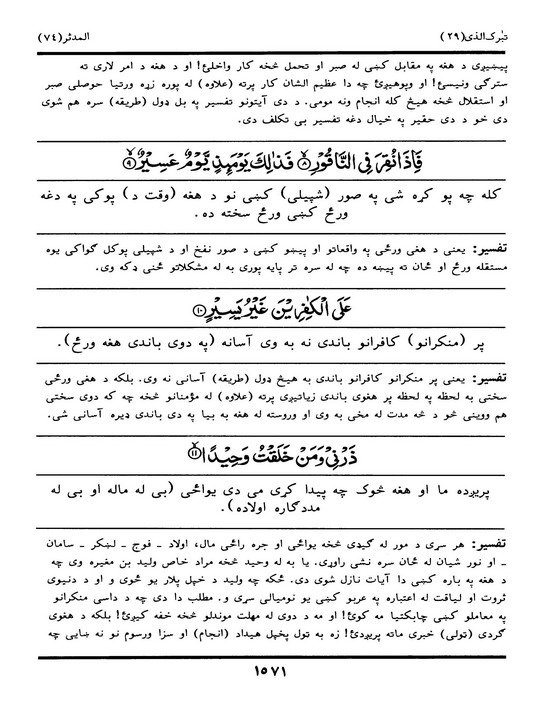 تبٰرک الذی (٢٩)
المدثر (٧٤)
پیښیږی د هغه په مقابل کښی له صبر او تحمل څخه کار واخلئ! او د هغه د امر لاری ته
سترګی ونیسئ! او پوهیږئ چه دا عظیم الشان کار پرته (علاوه) له پوره زړه ورتیا حوصلی صبر
او استقلال څخه هیڅ کله انجام ونه مومی. د دی آیتونو تفسیر په بل ډول (طریقه) سره هم شوی
دی خو د دی حقیر په خیال دغه تفسیر بی تکلف دی.
فَاِذَا نُقِرَ فِى النَّاقُوْرِ ۙ﴿٨﴾ فَذٰلِكَ يَوْمَىِٕذٍ يَّوْمٌ عَسِيْرٌ ۙ﴿٩﴾
کله چه پو کړه شی په صور (شپیلی) کښی نو د هغه (وقت د) پوکی په دغه
ورځ کښی ورځ سخته ده.
تفسیر: یعنی د هغی ورځی په واقعاتو او پیښو کښی د صور نفخ او د شپیلی پوکل ګواکی یوه
مستقله ورځ او ځان ته پیښه ده چه له سره تر پایه پوری به له مشکلاتو ځنی ډکه وی.
عَلَى الْكٰفِرِيْنَ غَيْرُ يَسِيْرٍ ﴿١٠﴾
پر (منکرانو) کافرانو باندی نه به وی آسانه (په دوی باندی هغه ورځ).
تفسیر: یعنی پر منکرانو کافرانو باندی به هیڅ ډول (طریقه) آسانی نه وی. بلکه د هغی ورځی
سختی به لحظه په لحظه پر هغوی باندی زیاتیږی پرته (علاوه) له مؤمنانو څخه چه که دوی سختی
هم ووینی خو د څه مدت له مخی به وی او وروسته له هغه به بیا په دی باندی ډیره آسانی شی.
ذَرْنِىْ وَمَنْ خَلَقْتُ وَحِيْدًا ۙ﴿١١﴾
پریږده ما او هغه څوک چه پیدا کړی می دی یواځی (بی له ماله او بی له
مددګاره اولاده).
تفسیر: هر سړی د مور له ګیډی څخه یواځی او جره راځی مال، اولاد ـ فوج ـ لښکر ـ سامان
ـ او نور شیان له ځان سره نشی راوړی. یا به له وحید څخه مراد خاص ولید بن مغیره وی چه
د هغه په باره کښی دا آیات نازل شوی دی. ځکه چه ولید د خپل پلار یو ځوی و او د دنیوی
ثروت او لیاقت له اعتباره په عربو کښی یو نومیالی سړی و. مطلب دا دی چه د داسی منکرانو
په معاملو کښی چابکتیا مه کوئ! او مه د دوی له مهلت موندلو څخه خفه کیږئ! بلکه د هغوی
ګردی (تولی) خبری ماته پریږدئ! زه به تول پخپل هیداد (انجام) او سزا ورسوم نو نه ښایی چه
١٥٧١